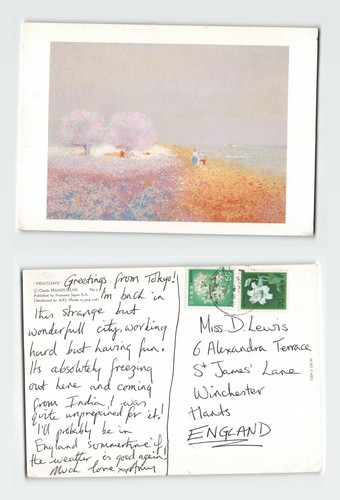 "PRINTEMPS"
© Claude
Published by Francony Japan S.A.
Greetings from Tokyo!
I'm back in
this strange but
wonderful city, working
hard but having fun.
Its absolutely freezing
out here and coming
from India, I was
quite unprepared for it!
I'll probably be in
England summertime if
the weather is good again!
Much love xx Amy
Miss. D. Lewis
6 Alexandra Terrace
St James' Lane
Winchester
Hants
ENGLAND